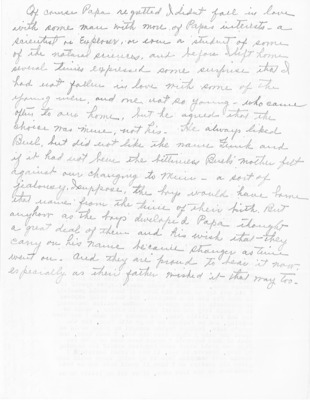 Of course Papa regretted I didnt fall in love
with some man with more of Papas interests - a
scientist or Explorer, or even a student of some
of the natural sciences, and before I left home
several times expressed some surprise that I
had not fallen in love with some of the
young men, and one not so young - who came
often to our home. But he agreed that the
choice was mine, not his. He always liked
Bush, but did not like the name and
if it had not been the bitterness Bush's mother felt
against our changing to Muir - a sort of
jealousy, I suppose, the boys would have borne
that name from the time of their birth. But
anyhow as the boys developed Papa thought
a great deal of them and his wish that they
carry on his name became stronger as time
went on. And they are proud to bear it now,
especially as their father wished it that way too.